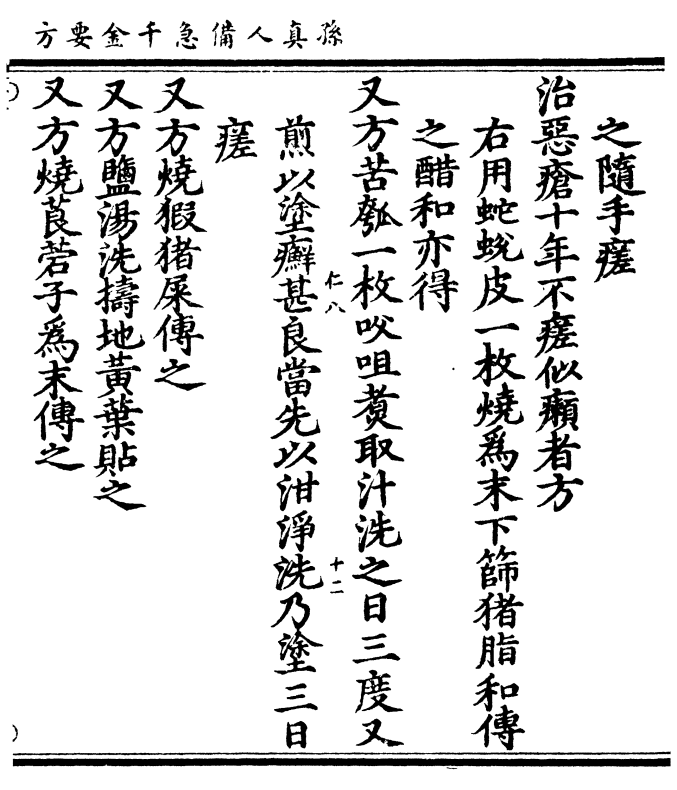 孫真人備急千金要方
之隨手瘥
治惡瘡十年不瘥似癩者方
右用蛇蛻皮一枚燒爲末下篩猪脂和傅
之醋和亦得
又方苦瓠一枚㕮咀煑取汁洗之日三度又
煎以塗癬甚良當先以泔淨洗乃塗三日
仁八
十二
瘥
又方燒猳猪屎傅之
又方鹽湯洗擣地黃葉貼之
又方燒莨菪子爲末傅之